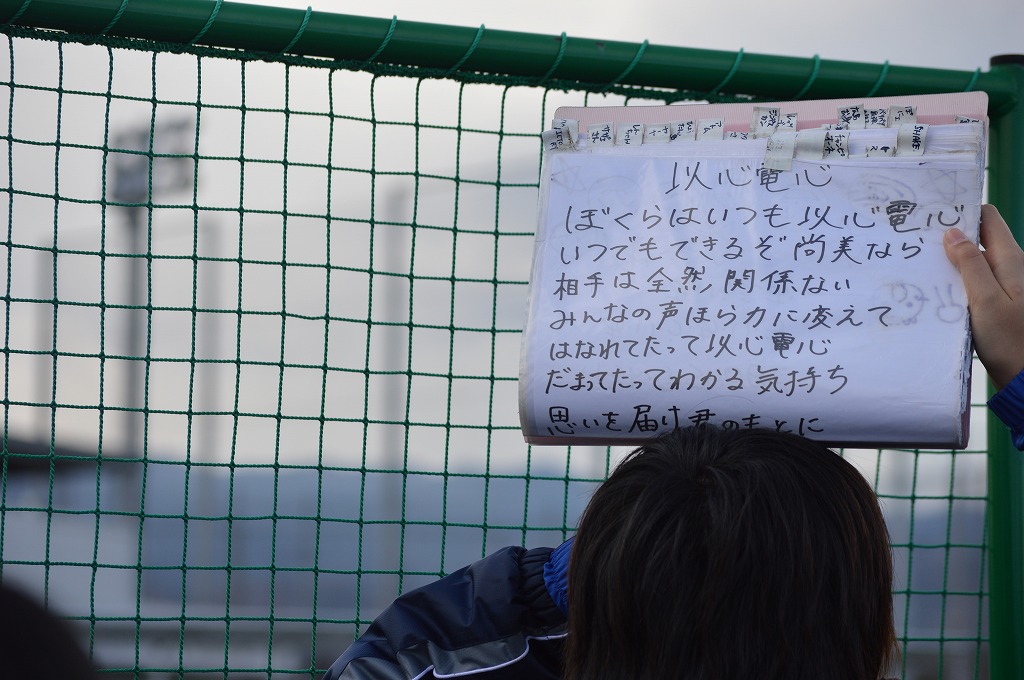 以心電心
ぼくらはいつも以心電心
いつでもできるぞ尚美なら
相手は全然関係ない
みんなの声ほら力に変えて
はなれてたって以心電心
だまってたってわかる気持ち
思いを届け君のもとに